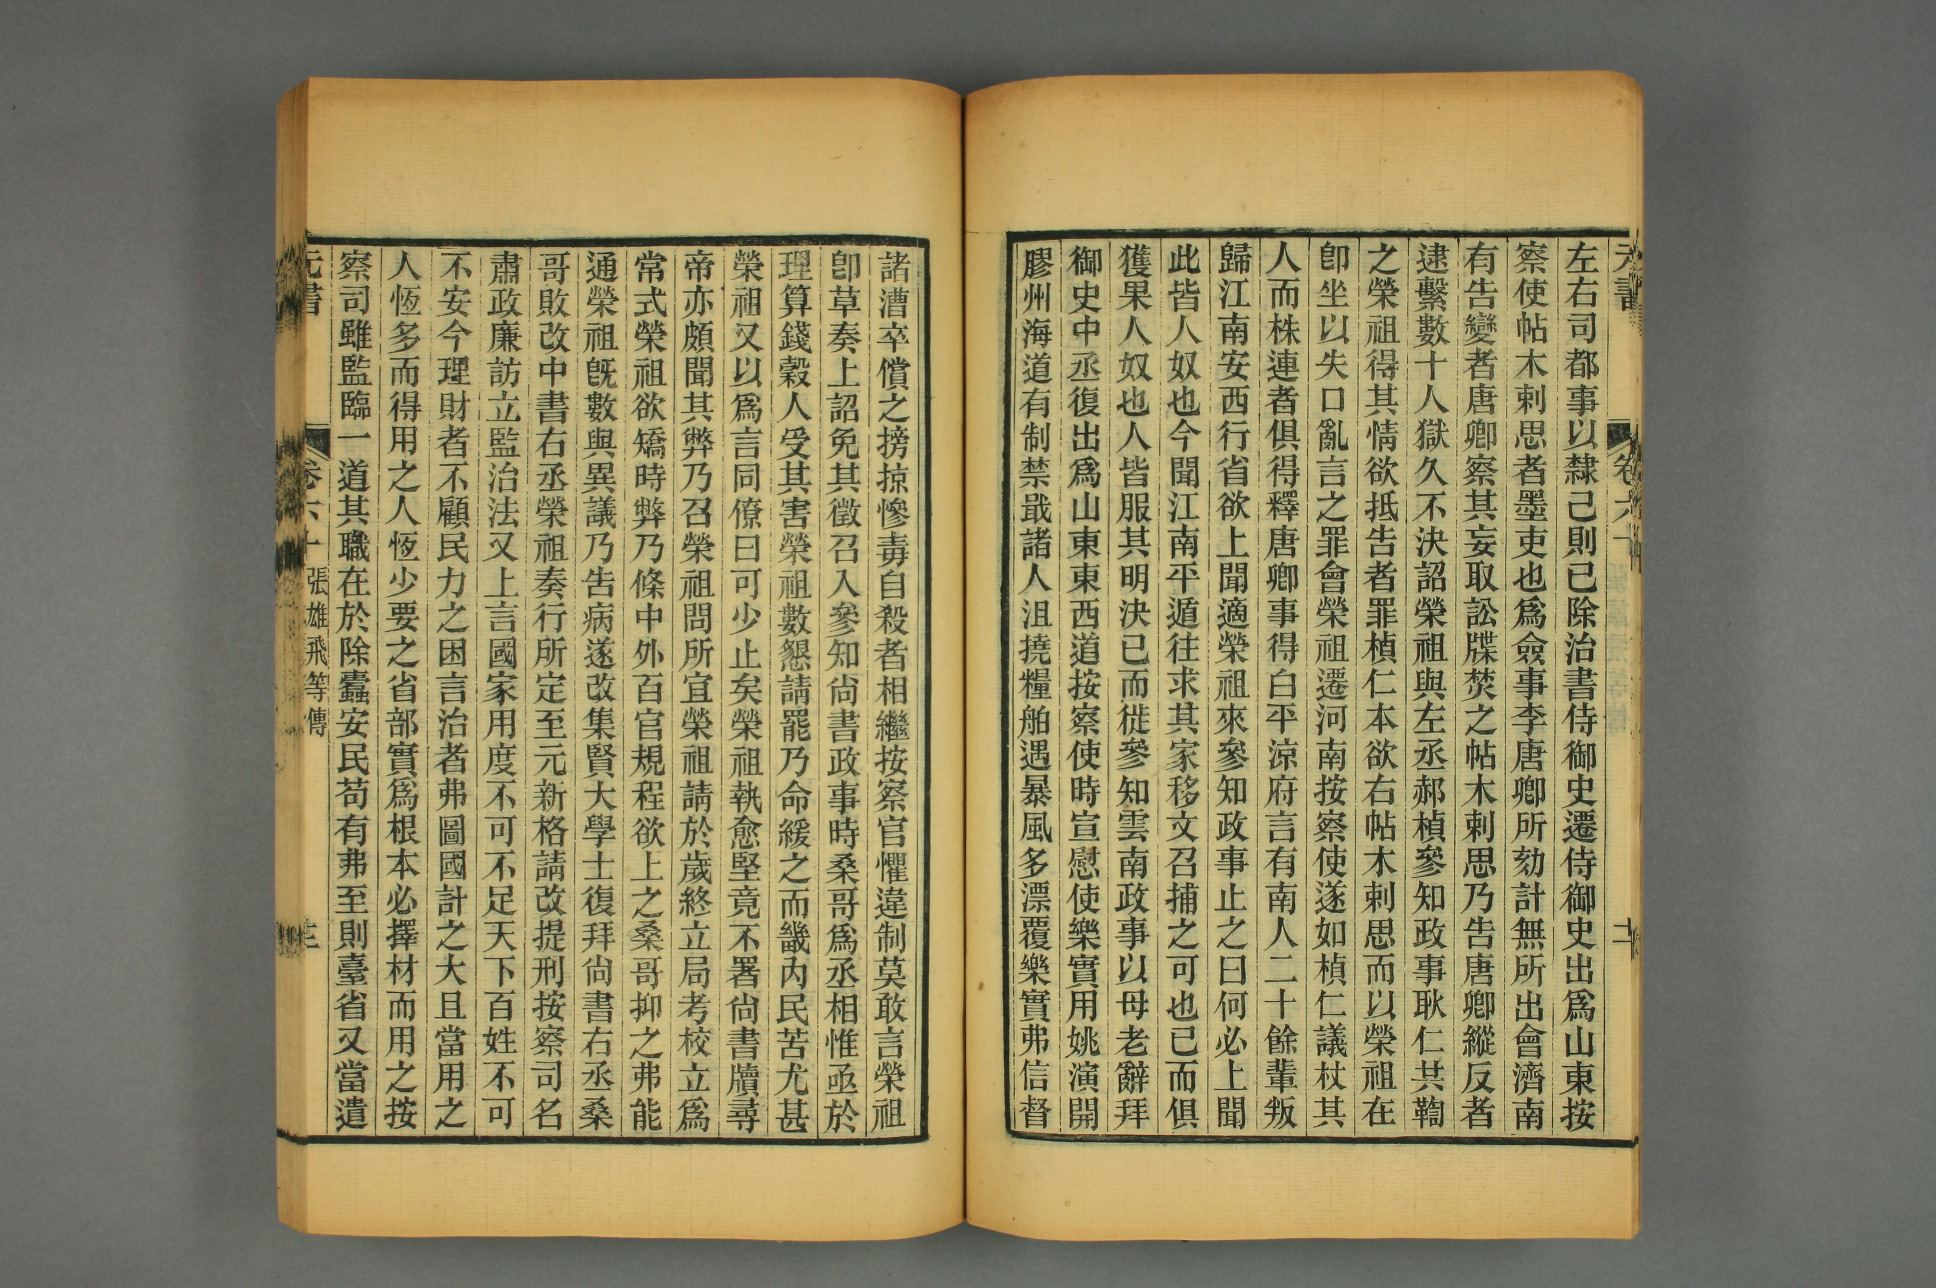 元書
卷六十
十二
左右司都事以隸己則已除治書侍御史遷侍御史出爲山東按
察使帖木剌思者墨吏也爲僉事李唐卿所劾計無所出會濟南
有告變者唐卿察其妄取訟牒焚之帖木剌思乃告唐卿縱反者
逮繫數十人獄久不決詔榮祖與左丞郝楨參知政事耿仁共鞫
之榮祖得其情欲抵告者罪楨仁本欲右帖木剌思而以榮祖在
卽坐以失口亂言之罪會榮祖遷河南按察使遂如楨仁議杖其
人而株連者俱得釋唐卿事得白平涼府言有南人二十餘輩叛
歸江南安西行省欲上聞適榮祖來參知政事止之曰何必上聞
此皆人奴也今聞江南平遁往求其家移文召捕之可也已而俱
獲果人奴也人皆服其明決已而徙參知雲南政事以母老辭拜
御史中丞復出爲山東東西道按察使時宣慰使樂實用姚演開
膠州海道有制禁戢諸人沮撓糧舶遇暴風多漂覆樂實弗信督
諸漕卒償之搒掠慘毒自殺者相繼按察官懼違制莫敢言榮祖
卽草奏上詔免其徵召入參知尙書政事時桑哥爲丞相惟亟於
理算錢穀人受其害榮祖數懇請罷乃命緩之而畿內民苦尤甚
榮祖又以爲言同僚曰可少止矣榮祖執愈堅竟不署尙書牘尋
帝亦頗聞其弊乃召榮祖問所宜榮祖請於歲終立局考校立爲
常式榮祖欲矯時弊乃條中外百官規程欲上之桑哥抑之弗能
通榮祖旣數與異議乃告病遂改集賢大學士復拜尙書右丞桑
哥敗改中書右丞榮祖奏行所定至元新格請改提刑按察司名
肅政廉訪立監治法又上言國家用度不可不足天下百姓不可
不安今理財者不顧民力之困言治者弗圖國計之大且當用之
人恆多而得用之人恆少要之省部實爲根本必擇材而用之按
察司雖監臨一道其職在於除蠹安民苟有弗至則臺省又當遣
元書
卷六十
張雄飛等傳